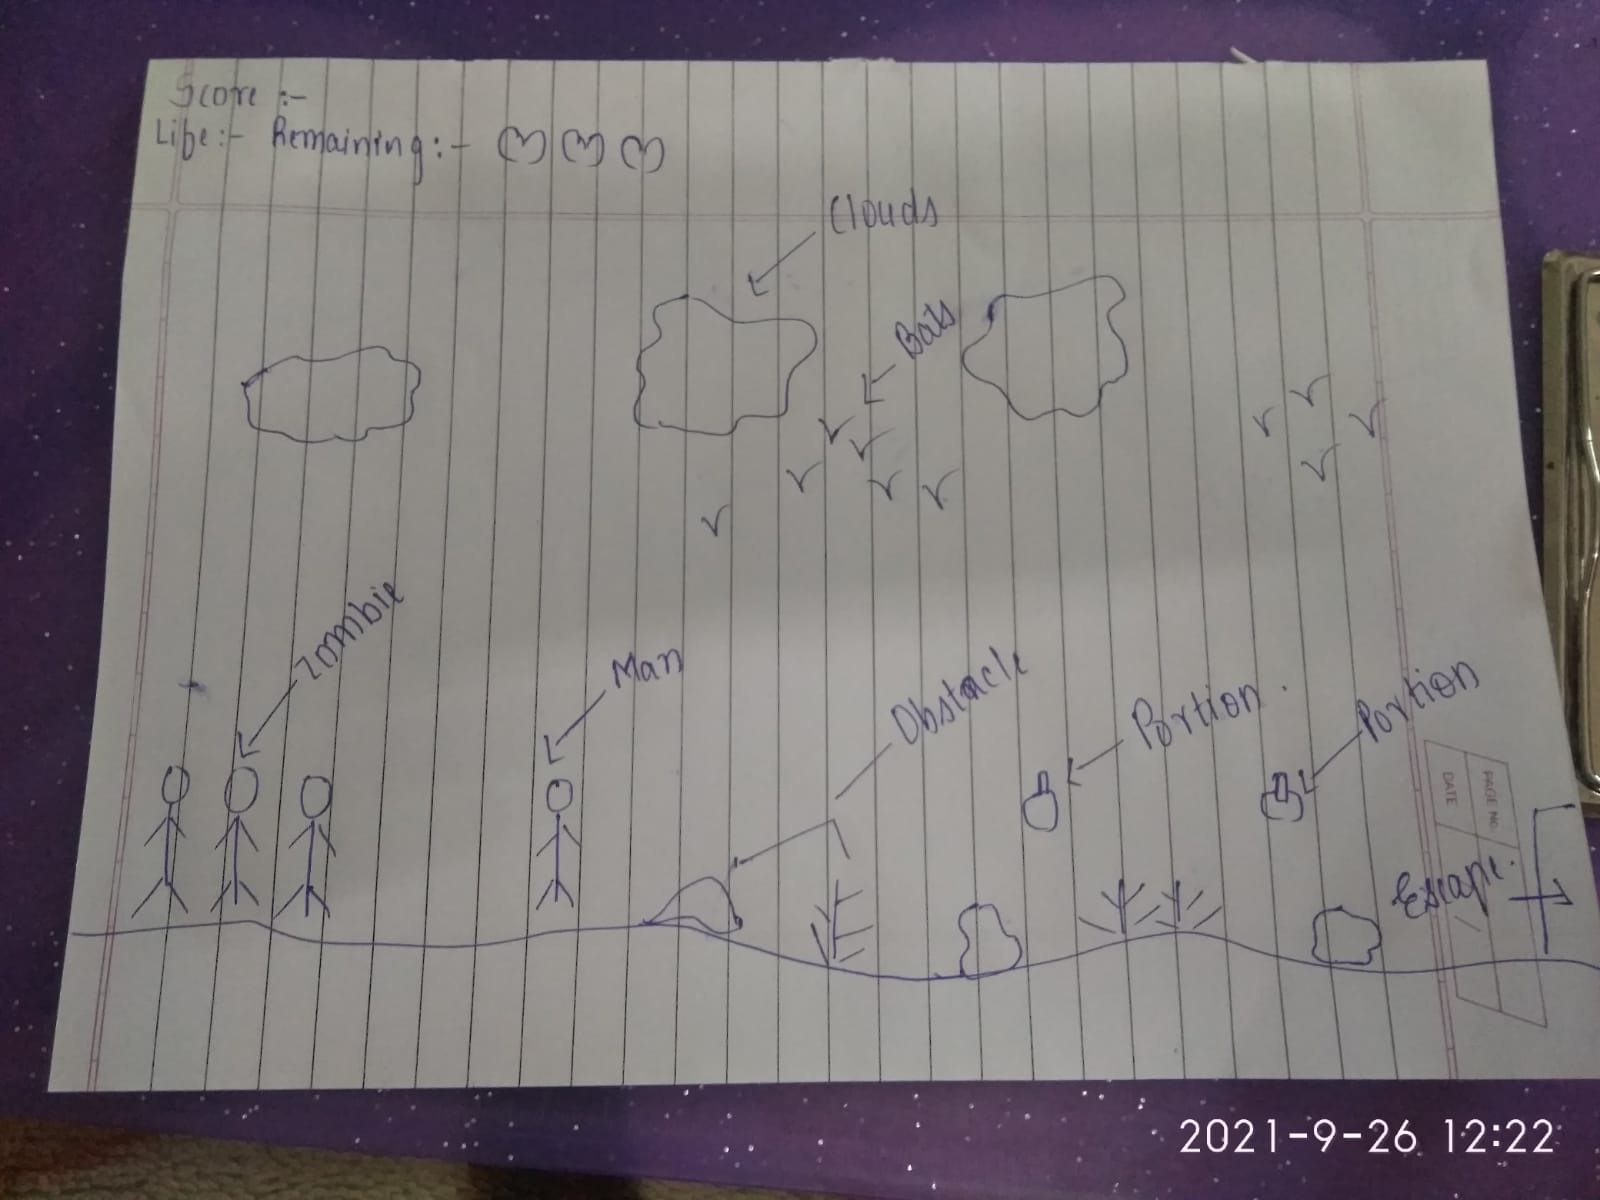 Score :-
Life:- Remaining:-
Clouds
Bats
Zombie
Man
Obstacle
Portion.
Portion
PAGE NO.
DATE
Escape.
2021-9-26 12:22